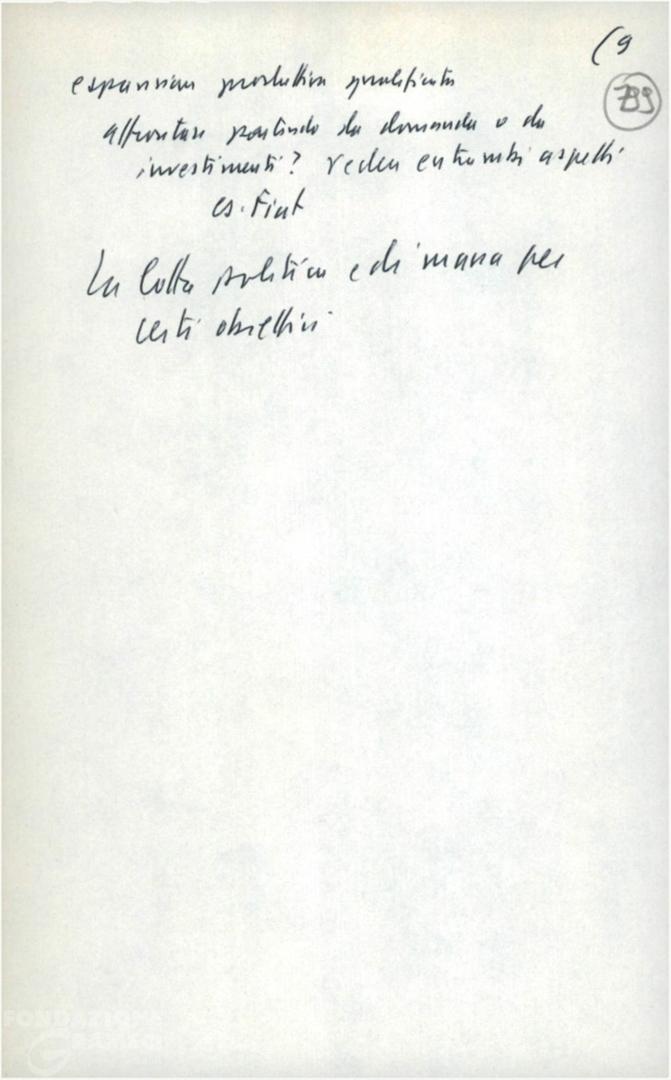 (9
789
espansione produttiva qualificata
affrontare partendo da domanda o da
investimenti? vedere entrambi aspetti
es. Fiat
La lotta politica e di massa per
certi obiettivi
FONDAZIONE
GRAMSCI